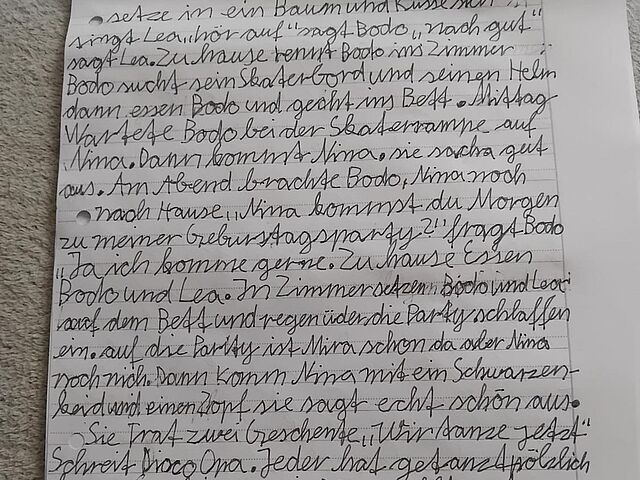 setze in ein Baum und Küsse sich
singt Lea „hör auf" sagt Bodo „nach gut"
sagt Lea. Zu hause rennt Bodo ins Zimmer
Bodo sucht sein Skater Bord und seinen Helm
dann essen Bodo und geäht ins Bett. Mittag
Wartete Bodo bei der Skaterrampe auf
Nina. Dann kommt Nina. sie sacha gut
aus. Am Abend brachte Bodo, Nina noch
nach Hause „Nina kommst du Morgen
zu meiner Geburstagsparty?!" fragt Bodo
„Ja ich komme gerne. Zu hause Essen
Bodo und Lea. In Zimmer setzen Bodo und Lea
auf dem Bett und regen üder die Party schlaffen
ein. auf die Parity ist Mira schon da aber Nina
noch nich. Dann Komm Nina mit ein Schwarzen
keid und einen Zopf sie sagt echt schön aus.
Sie Trat zwei Geschente „Wir tanze jetzt"
Schreit Disco Opa. Jeder hat getanzt plözlich